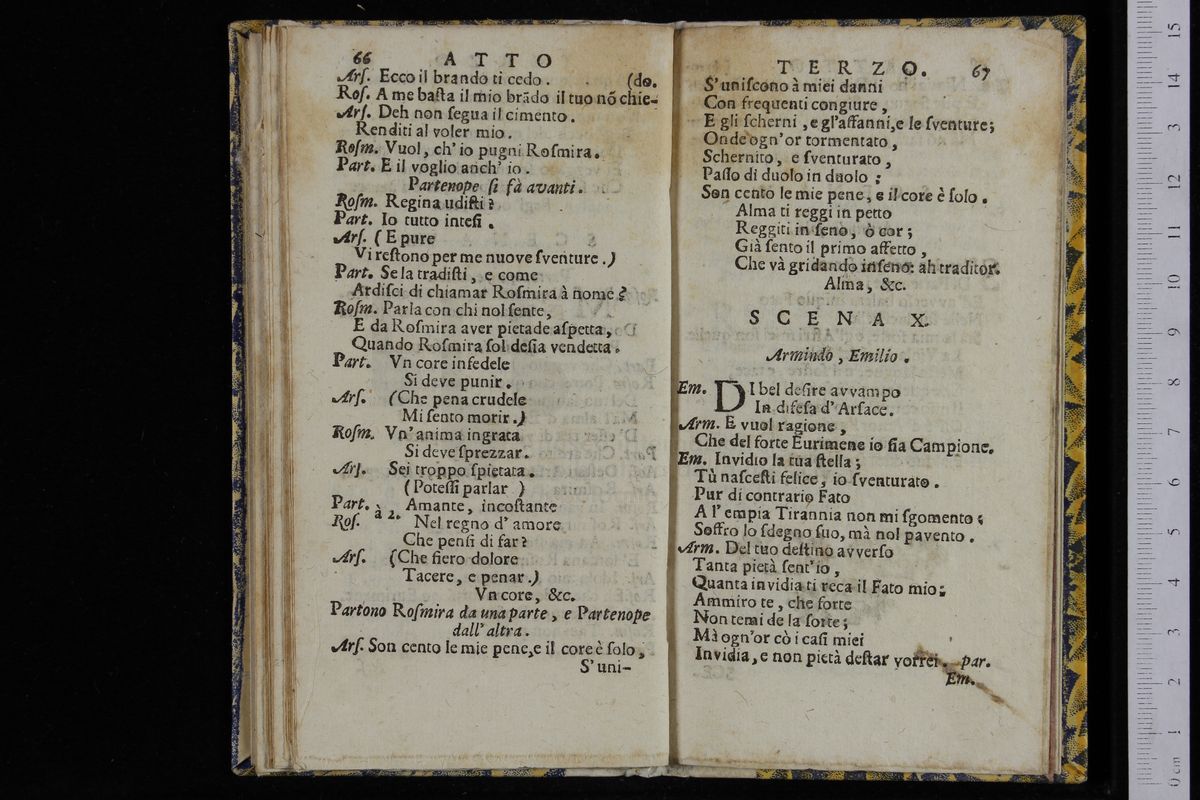 66 ATTO
Arſ. Ecco il brando ti cedo. (do.
Roſ. A me baſta il mio brãdo il tuo nõ chie-
Arſ. Deh non ſegua il cimento.
Renditi al voler mio.
Roſm. Vuol, ch' io pugni Roſmira.
Part. E il voglio anch' io.
Partenope ſi fà avanti.
Roſm. Regina udiſti?
Part. Io tutto inteſi.
Arſ. (E pure
Vi reſtono per me nuove ſventure.)
Part. Se la tradiſti, e come
Ardiſci di chiamar Roſmira à nome?
Roſm. Parla con chi nol ſente,
E da Roſmira aver pietade aſpetta,
Quando Roſmira ſol deſia vendetta.
Part. Vn core infedele
Si deve punir.
Arſ. (Che pena crudele
Mi ſento morir.)
Roſm. Vn' anima ingrata
Si deve ſprezzar.
Arſ. Sei troppo ſpietata.
(Poteſſi parlar )
Part. à 2. Amante, incoſtante
Roſ. Nel regno d' amore
Che penſi di far?
Arſ. (Che fiero dolore
Tacere, e penar.)
Vn core, &c.
Partono Roſmira da una parte, e Partenope
dall' altra.
Arſ. Son cento le mie pene, e il core è ſolo,
S' uni-
TERZO. 67
S' uniſcono à miei danni
Con frequenti congiure,
E gli ſcherni, e gl'affanni, e le ſventure;
Onde ogn'or tormentato,
Schernito, e ſventurato,
Paſſo di duolo in duolo;
Son cento le mie pene, e il core è ſolo.
Alma ti reggi in petto
Reggiti in ſeno, ò cor;
Già ſento il primo affetto,
Che và gridando inſeno: ah traditor.
Alma, &c.
SCENA X.
Armindo, Emilio.
Em. DI bel deſire avvampo
In difeſa d' Arſace.
Arm. E vuol ragione,
Che del forte Eurimene io ſia Campione.
Em. Invidio la tua ſtella;
Tù naſceſti felice, io ſventurato.
Pur di contrario Fato
A l' empia Tirannia non mi ſgomento;
Soffro lo ſdegno ſuo, mà nol pavento.
Arm. Del tuo deſtino avverſo
Tanta pietà ſent' io,
Quanta invidia ti reca il Fato mio;
Ammiro te, che forte
Non temi de la ſorte;
Mà ogn'or cò i caſi miei
Invidia, e non pietà deſtar vorrei. par.
Em.